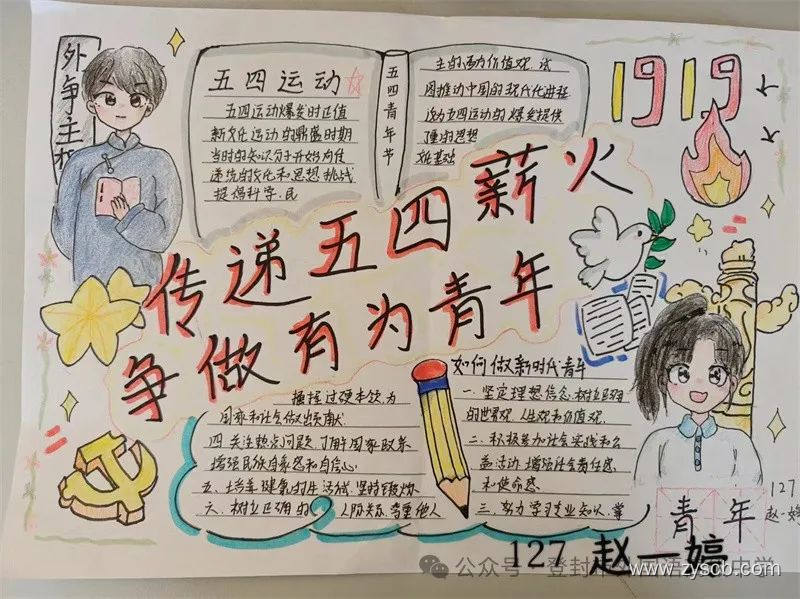 外争主权
五四运动
五四运动爆发时正值
新文化运动的鼎盛时期
当时的知识分子开始向传
统的文化和思想挑战
提倡科学、民
五四青年节
主的活动价值观,试
图推动中国的现代化进程
这为五四运动的爆发提供
了重的思想
文化基础
1919
传递五四薪火
争做有为青年
掌握过硬本领,为
国家和社会做出贡献
四、关注热点问题,了解国家政策
增强民族自豪感和自信心
五、培养健康的生活,坚持锻炼
六、树立正确的人际关系,尊重他人
如何做新时代青年
一、坚定理想信念,树立正确
的世界观、人生观和价值观,
二、积极参加社会实践和公
益活动,增强社会责任感,
和使命感
三、努力学习专业知识,掌
青年
127
赵一婷
127 赵一婷
公众号
登封
中学
www.zyscb.com